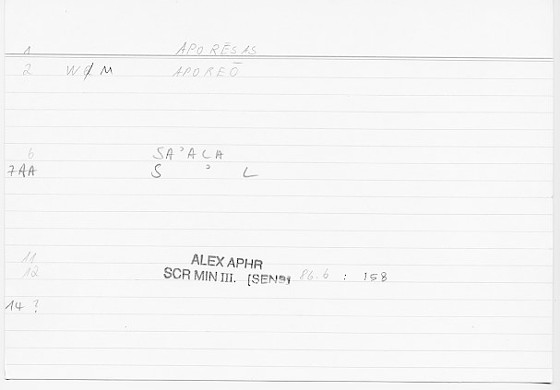 1 APORĒSAS
2 W¢M APOREŌ
6 SAʾALA
7AA S ʾ L
11 ALEX APHR
12 SCR MIN III. [SENS] 86.6 : 158
14 ?